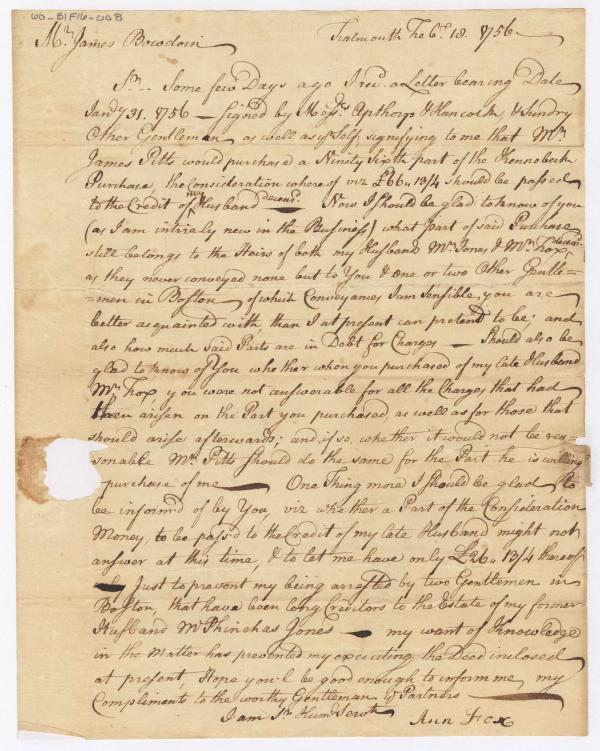 60-B1F16-003
Mr. James Bowdoin
Falmouth Feb. 18. 1756
Sr. Some few Days ago I recd. a Letter bearing Date
Jany 31. 1756 — Signed by Messrs. Apthorp & Hancock, & Sundry
Other Gentlemen as well as yr Self, signifying to me that Mr.
James Pitts would purchase a Ninety Sixth part of the Kennebeck
Purchase, the Consideration whereof viz £66,, 13/4 should be passed
to the Credit of my Husband deceasd. — Now I should be glad to know of you
(as I am intirely new in the Business) what part of said Purchase
still belongs to the Heirs of both my Husbands Mr. Jones & Mr. Fox, deceasd.
as they never conveyed none but to You & one or two Other Gentle=
=men in Boston, of which Conveyances I am Sensible, you are
better acquainted with, than I at present can pretend to be; and
also how much said Parts are in Debt for Charges — Should also be
glad to know of You whether when you purchased of my late Husband
Mr. Fox, you were not answerable for all the Charges that had
then arisen on the Part you purchased, as well as for those that
should arise afterwards; and if so, whether it would not be rea=
=sonable Mr. Pitts should do the same for the Part he is willing
purchase of me — One Thing more I should be glad to
be inform'd of by You, viz whether a Part of the Consideration
Money, to be pass'd to the Credit of my late Husband might not
answer at this time, & to let me have only £26,, 13/4 thereof
Just to prevent my being arrested by two Gentlemen in
Boston, that have been long Creditors to the Estate of my former
Husband Mr. Phinehas Jones — my want of Knowledge
in the Matter has prevented my executing the Deed inclosed
at present, Hope you'l be good enough to inform me, my
Compliments to the worthy Gentlemen yr Partners —
I am Sr. Hum. Servt.
Ann Fox